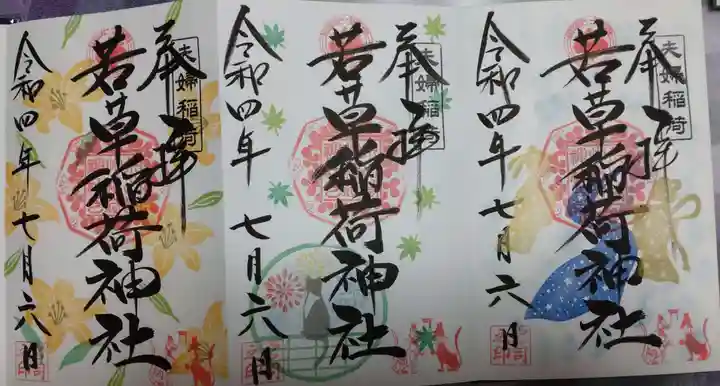 奉拝
夫婦稲荷
若草稲荷神社
令和四年七月六日
奉拝
夫婦稲荷
若草稲荷神社
令和四年七月六日
奉拝
夫婦稲荷
若草稲荷神社
令和四年七月六日